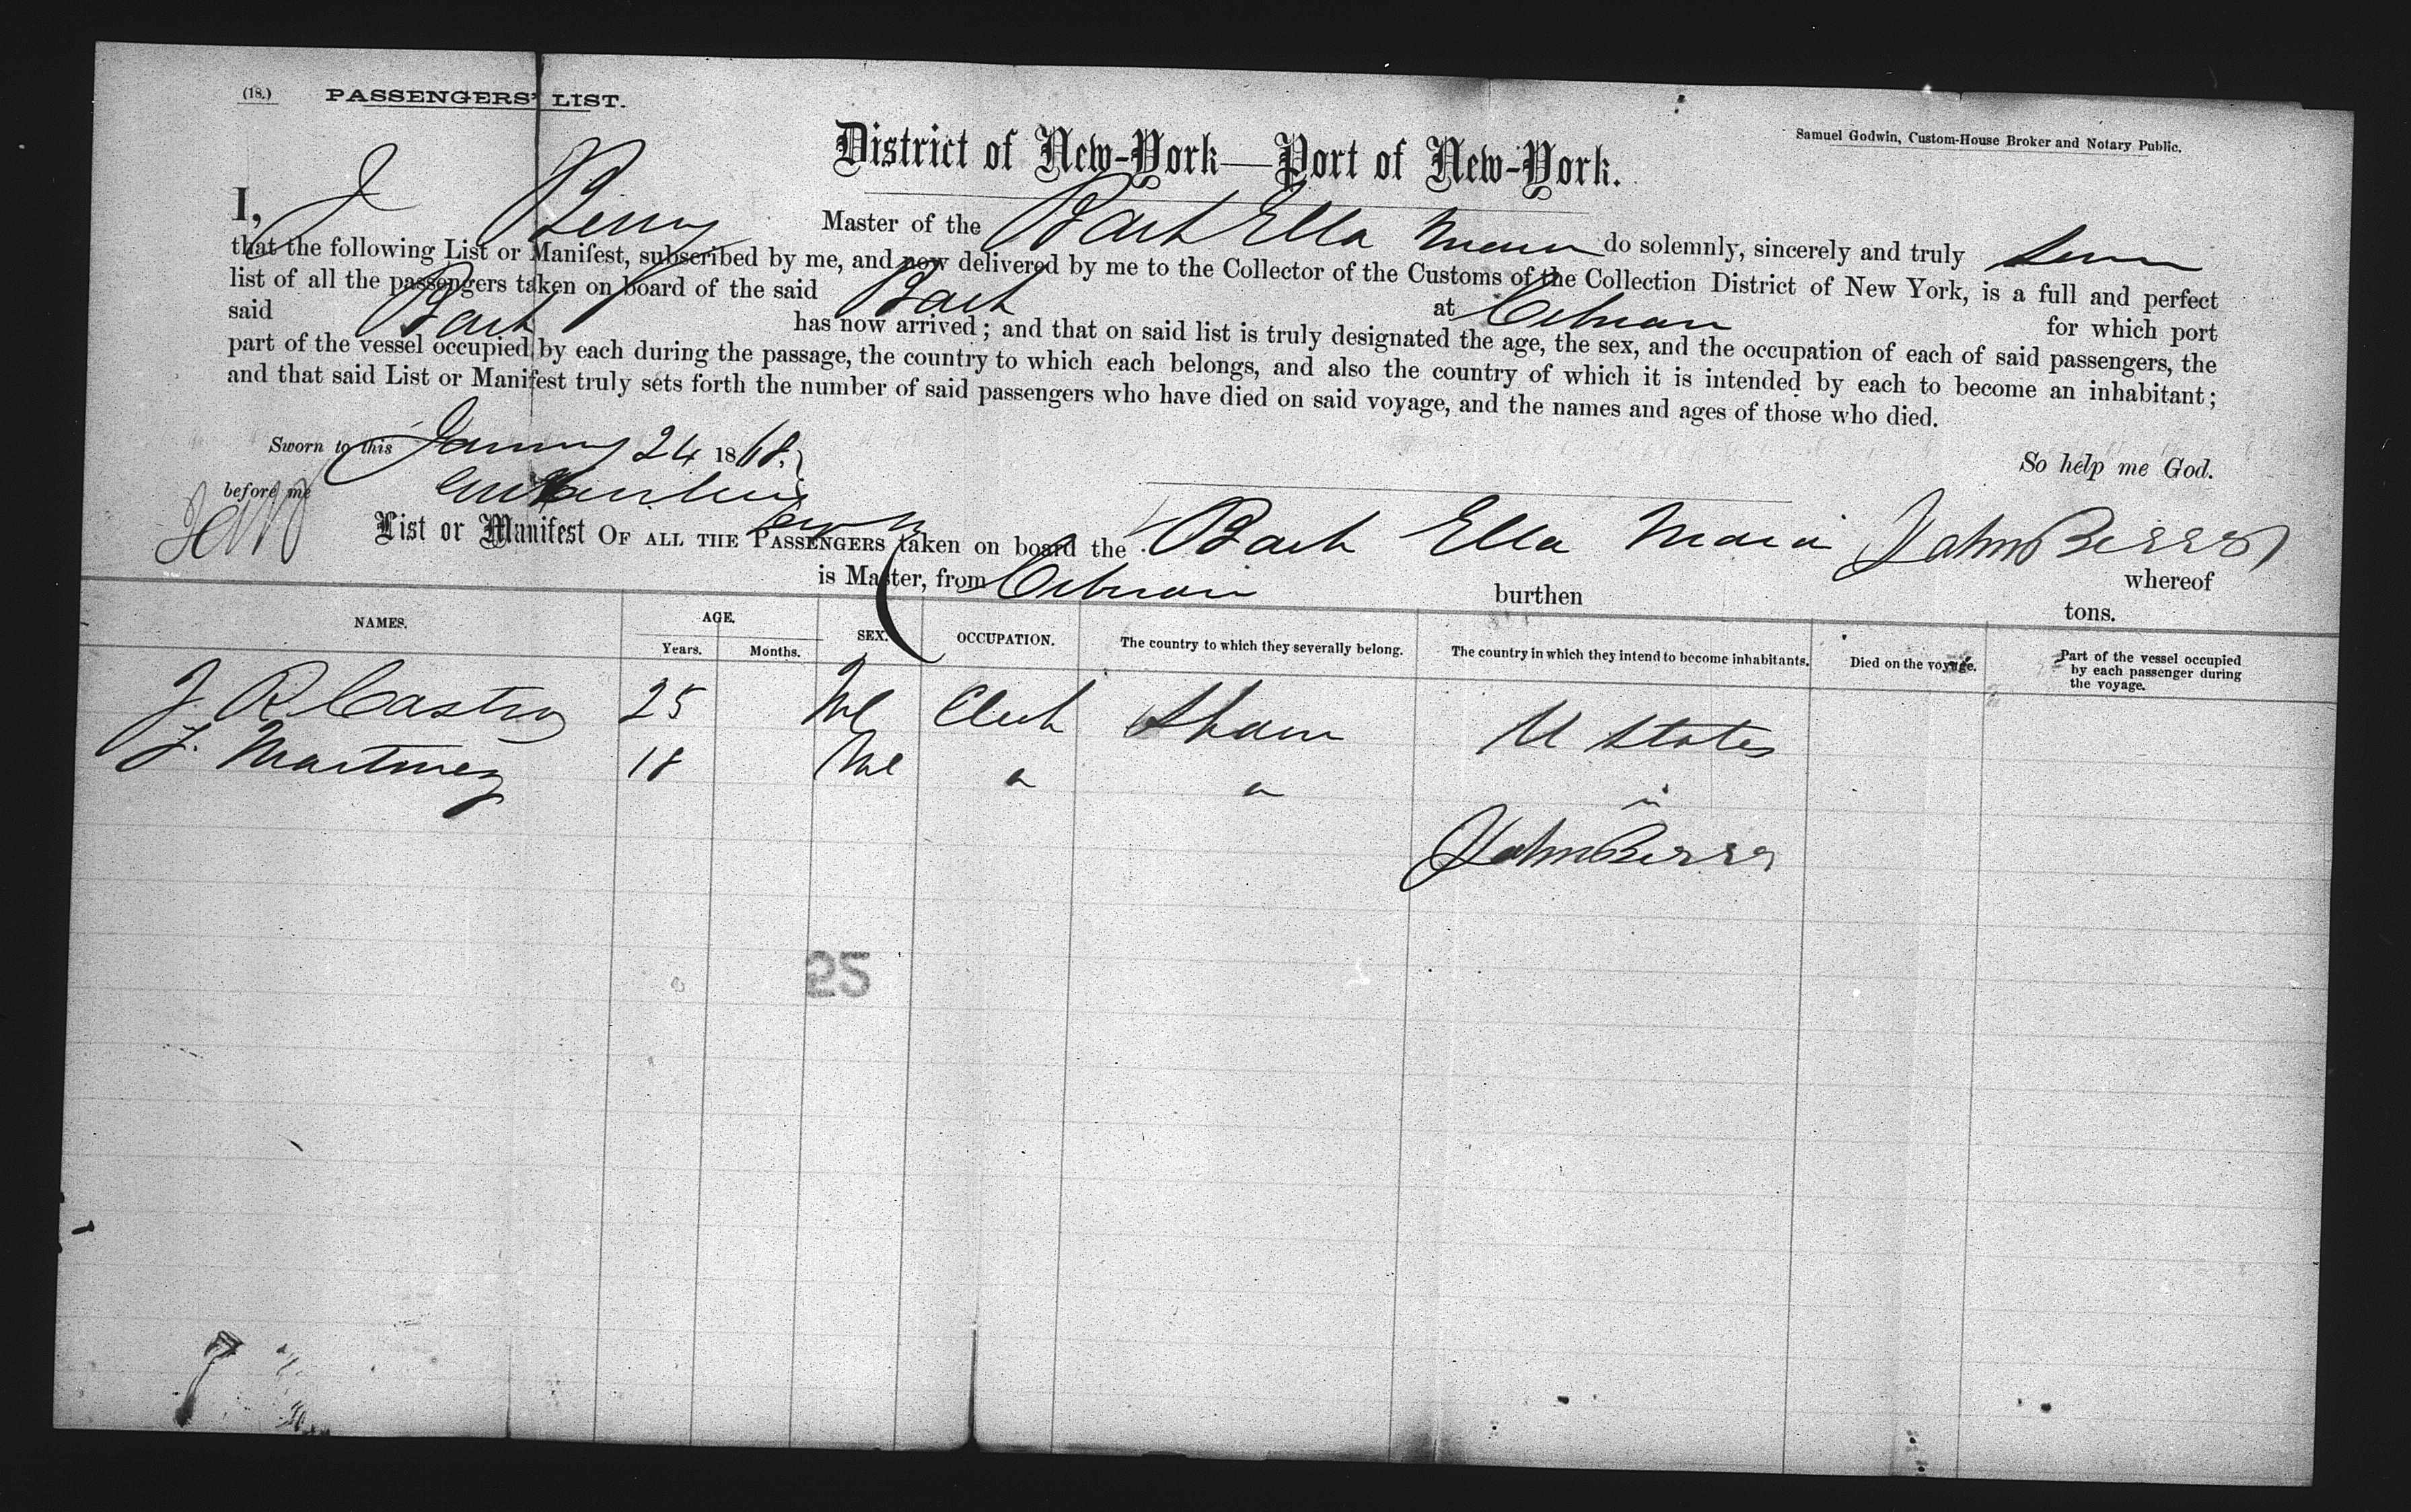 (18.) PASSENGERS' LIST.
Samuel Godwin, Custom-House Broker and Notary Public.
District of New-York—Port of New-York.
I, J Berry Master of the Bark Ella Maria do solemnly, sincerely and truly
that the following List or Manifest, subscribed by me, and now delivered by me to the Collector of the Customs of the Collection District of New York, is a full and perfect
list of all the passengers taken on board of the said Bark at for which port
said Bark has now arrived; and that on said list is truly designated the age, the sex, and the occupation of each of said passengers, the
part of the vessel occupied by each during the passage, the country to which each belongs, and also the country of which it is intended by each to become an inhabitant;
and that said List or Manifest truly sets forth the number of said passengers who have died on said voyage, and the names and ages of those who died.
So help me God.
Sworn to this January 24 1868.
before me
List or Manifest OF ALL THE PASSENGERS taken on board the Bark Ella Maria John Berry whereof
is Master, from burthen tons.
NAMES. AGE. SEX. OCCUPATION. The country to which they severally belong. The country in which they intend to become inhabitants. Died on the voyage. Part of the vessel occupied by each passenger during the voyage.
Years. Months.
J. R Castro 25 Ml Clerk Spain U States
J. Martinez 18 Ml " " "
John Berry
25